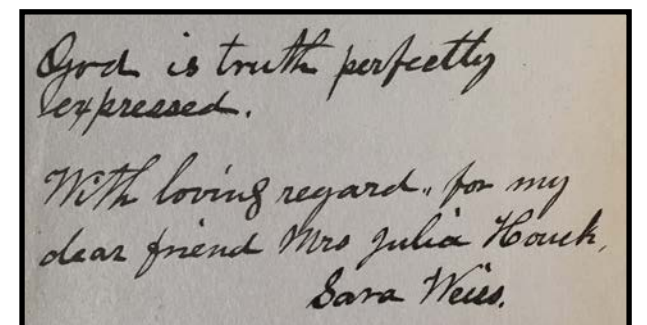 God is truth perfectly
expressed.
With loving regard,, for my
dear friend Mrs Julia Houck,
Sara Weiss.